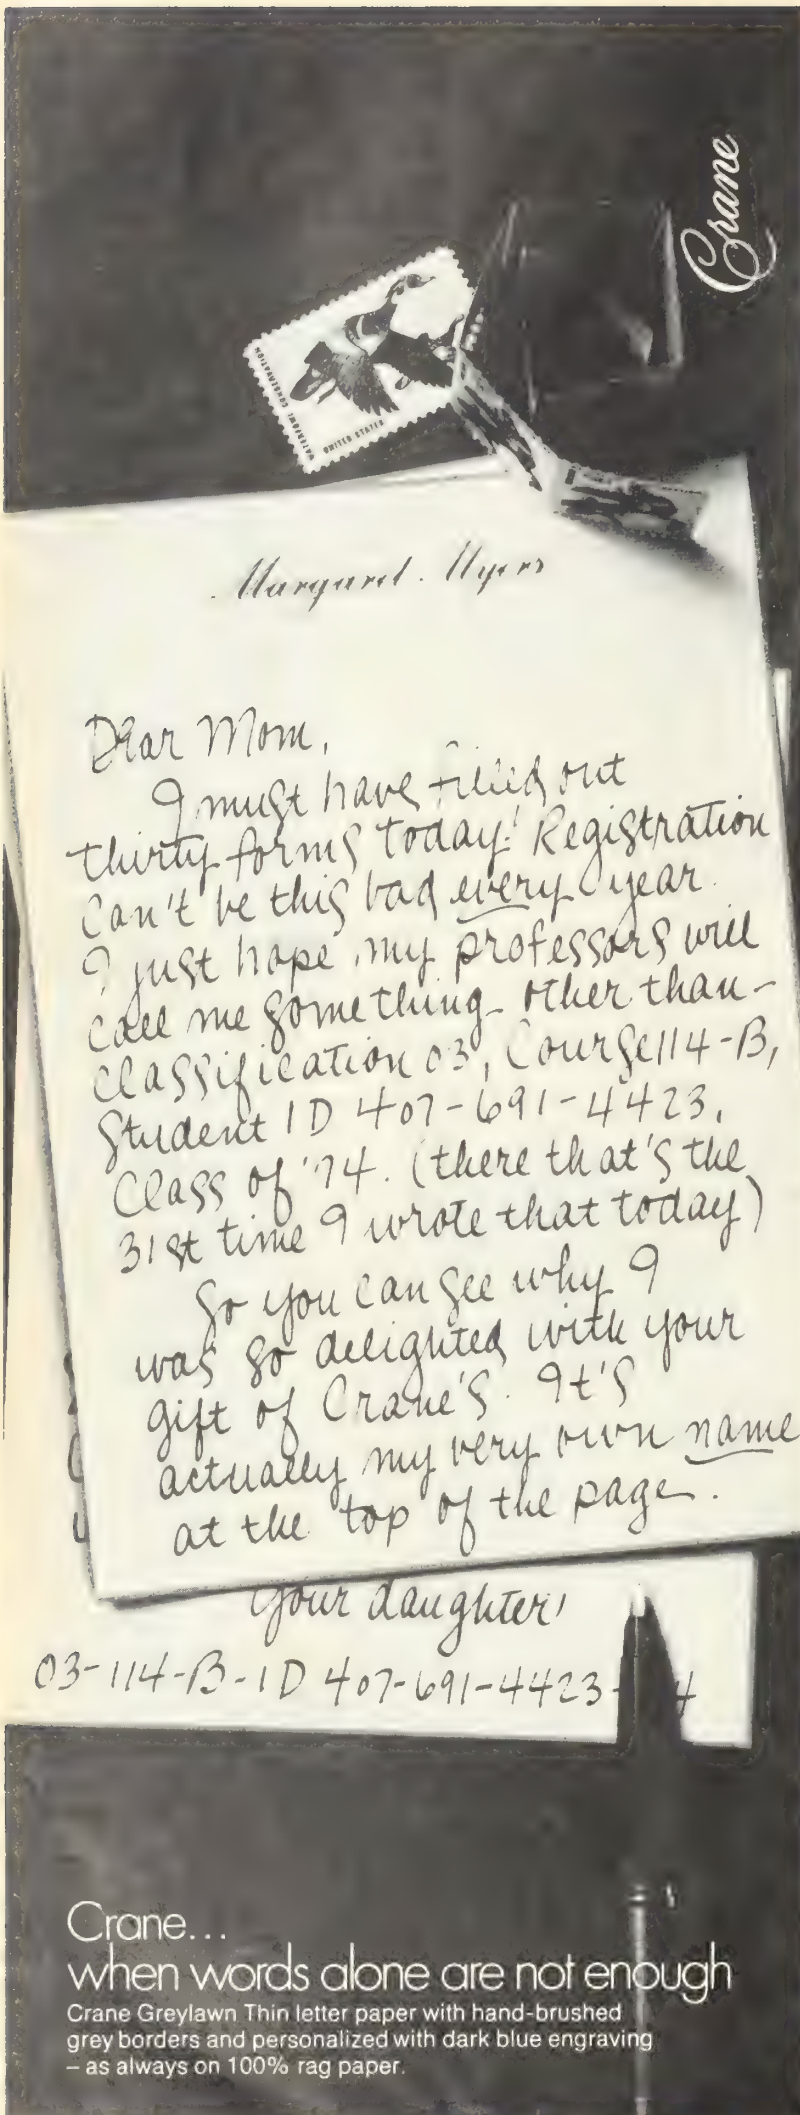 Crane
WATERFOWL CONSERVATION
UNITED STATES
Margaret Myers
Dear Mom,
I must have filled out
thirty forms today! Registration
can't be this bad every year.
I just hope my professors will
call me something other than -
classification 03, Course 114-B,
Student ID 407-691-4423,
Class of '74. (there that's the
31st time I wrote that today)
So you can see why I
was so delighted with your
gift of Crane's. It's
actually my very own name
at the top of the page.
Your daughter,
03-114-B-ID 407-691-4423-
Crane...
when words alone are not enough
Crane Greylawn Thin letter paper with hand-brushed
grey borders and personalized with dark blue engraving
– as always on 100% rag paper.